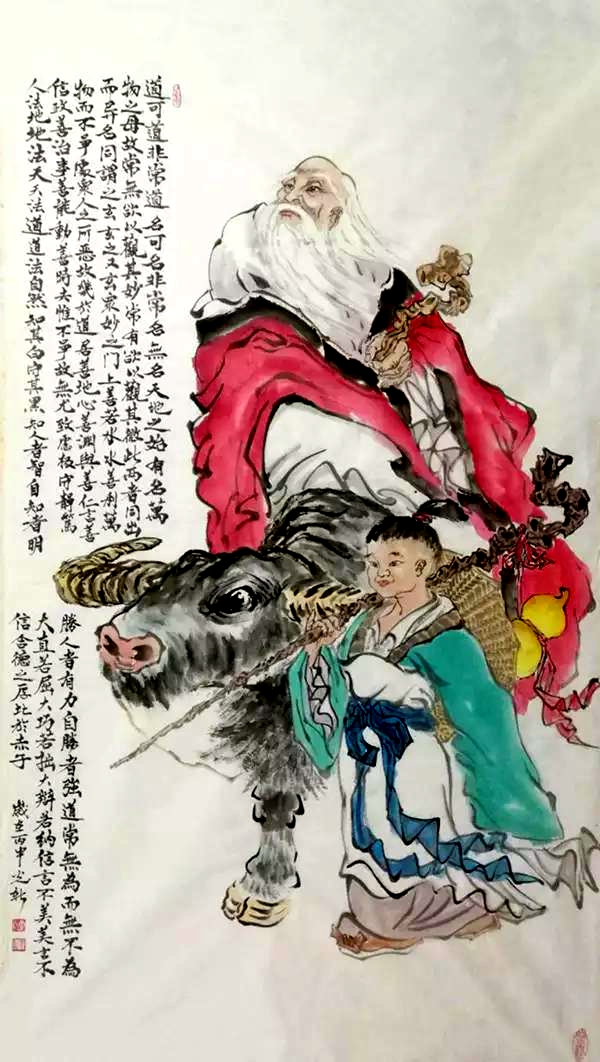 道可道非常道名可名非常名無名天地之始有名萬
物之母故常無欲以觀其妙常有欲以觀其徼此两者同出
而异名同謂之玄玄之又玄衆妙之门上善若水水善利萬
物而不爭處衆人之所恶故幾於道居善地心善淵與善仁言善
信政善治事善能動善時夫惟不爭故無尤致虛極守靜篤
人法地地法天天法道道法自然知其白守其黑知人者智自知者明
勝人者有力自勝者強道常無為而無不為
大直若屈大巧若拙大辯若訥信言不美美言不
信含德之厚比於赤子 歲在丙申